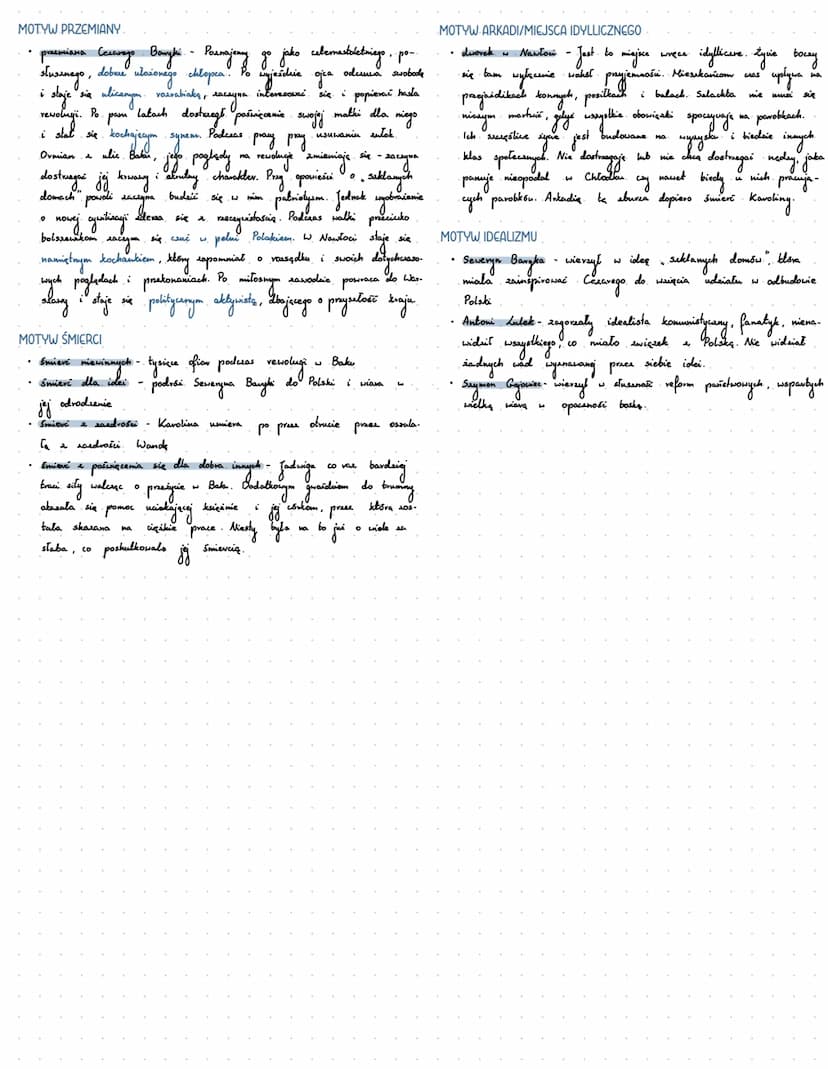 MOTYW PRZEMIANY
• przemiana Cezarego Baryki - Poznajemy go jako czternastoletniego, po-
słusznego, dobrze ułożonego chłopca. Po wyjeździe ojca odczuwa swobodę
i staje się ulicznym rozrabiaką, zaczyna interesować się i popierać hasła
rewolucji. Po paru latach dostrzegł poświęcenie swojej matki dla niego
i stał się kochającym synem. Podczas pracy przy usuwaniu zwłok
Ormian z ulic Baku, jego poglądy na rewolucje zmieniają się - zaczyna
dostrzegać jej krwawy i okrutny charakter. Przy opowieści o „szklanych
domach" powoli zaczyna budzić się w nim patriotyzm. Jednak wyobrażenie
o nowej cywilizacji zderza się z rzeczywistością. Podczas walki przeciwko
bolszewikom zaczyna się czuć w pełni Polakiem. W Nawłoci staje się
namiętnym kochankiem, który zapomniał o rozsądku i swoich dotychczaso-
wych poglądach i przekonaniach. Po miłosnym zawodzie powraca do War-
szawy i staje się politycznym aktywistą, dbającego o przyszłość kraju
MOTYW ŚMIERCI
• śmierć niewinnych - tysiące ofiar podczas rewolucji w Baku
• śmierć dla idei - podróż Seweryna Baryki do Polski i wiara w
jej odrodzenie
• śmierć z zazdrości - Karolina umiera po przez otrucie przez oszala-
łą z zazdrości Wandę
• śmierć z poświęcenia się dla dobra innych - Jadwiga co raz bardziej
traci siły walcząc o przeżycie w Baku. Dodatkowym gwoździem do trumny
okazała się pomoc uciekającej księżnie i jej córkom, przez którą zos-
tała skazana na ciężkie prace. Niesty była na to już o wiele za
słaba, co poskutkowało jej śmiercią.
MOTYW ARKADI/MIEJSCA IDYLLICZNEGO
• dworek w Nawłoci - Jest to miejsce wręcz idylliczne. Życie toczy
się tam wyłącznie wokół przyjemności. Mieszkańcom czas upływa na
przejażdżkach konnych, posiłkach i balach. Szlachta nie musi się
niczym martwić, gdyż wszystkie obowiązki spoczywają na parobkach.
Ich szczęśliwe życie jest budowane na wyzysku i biedzie innych
klas społecznych. Nie dostrzegają lub nie chcą dostrzegać nędzy, jaka
panuje nieopodal w Chłodku czy nawet biedy u nich pracują-
cych parobków. Arkadię tę zburza dopiero śmierć Karoliny.
MOTYW IDEALIZMU
• Seweryn Baryka - wierzył w ideę „szklanych domów", która
miała zainspirować Cezarego do wzięcia udziału w odbudowie
Polski
• Antoni Lulek - zagorzały idealista komunistyczny, fanatyk, niena-
widził wszystkiego, co miało związek z Polską. Nie widział
żadnych wad wyznawanej przez siebie idei.
• Szymon Gajowiec - wierzył w słuszność reform państwowych, wspartych
wielką wiarą w opaczność boską.